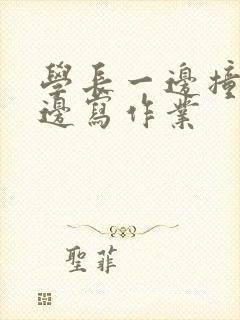 學長一邊撞
邊寫作業
聖菲